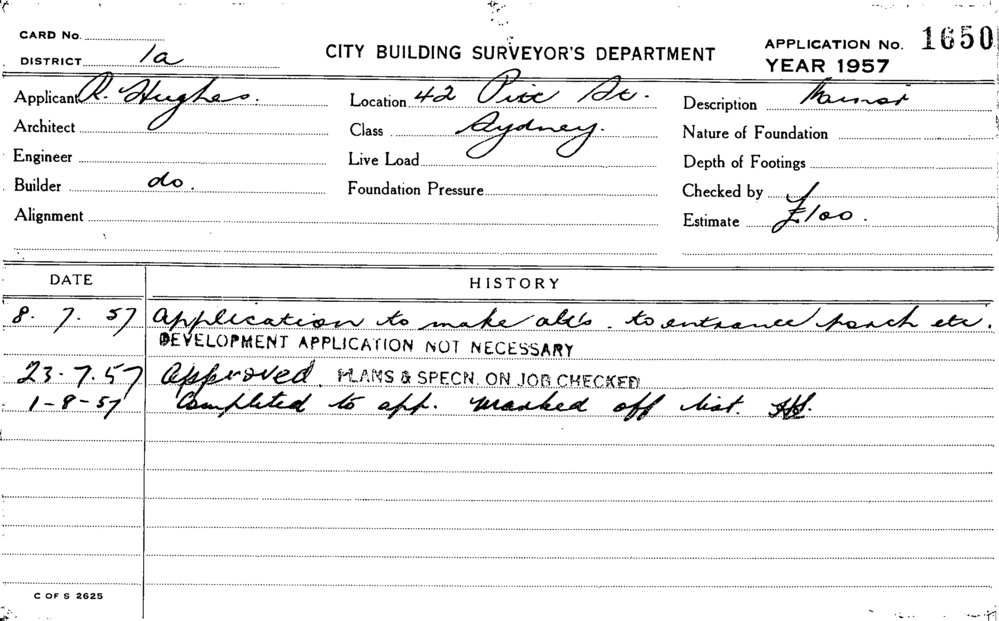 CARD No.
DISTRICT 1a
CITY BUILDING SURVEYOR'S DEPARTMENT
APPLICATION No. 1650
YEAR 1957
Applicant R. Hughes.
Location 42 Pitt St.
Description
Architect
Class Sydney.
Nature of Foundation
Engineer
Live Load
Depth of Footings
Builder do.
Foundation Pressure
Checked by
Alignment
Estimate £100.
DATE HISTORY
8. 7. 57 Application to make alt's. to entrance porch etc.
DEVELOPMENT APPLICATION NOT NECESSARY
23-7.57 Approved. PLANS & SPECN. ON JOB CHECKED
1-8-57 Completed to app. Marked off list.
C OF S 2625